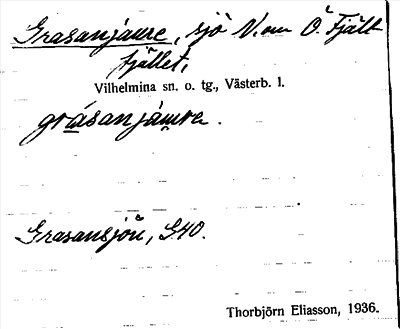 Grasanjaure, sjö V. om Ö. Fjäll
fjället,
Vilhelmina sn. o. tg., Västerb. l.
grásanjáu̯re.
Grasansjön, G40.
Thorbjörn Eliasson, 1936.